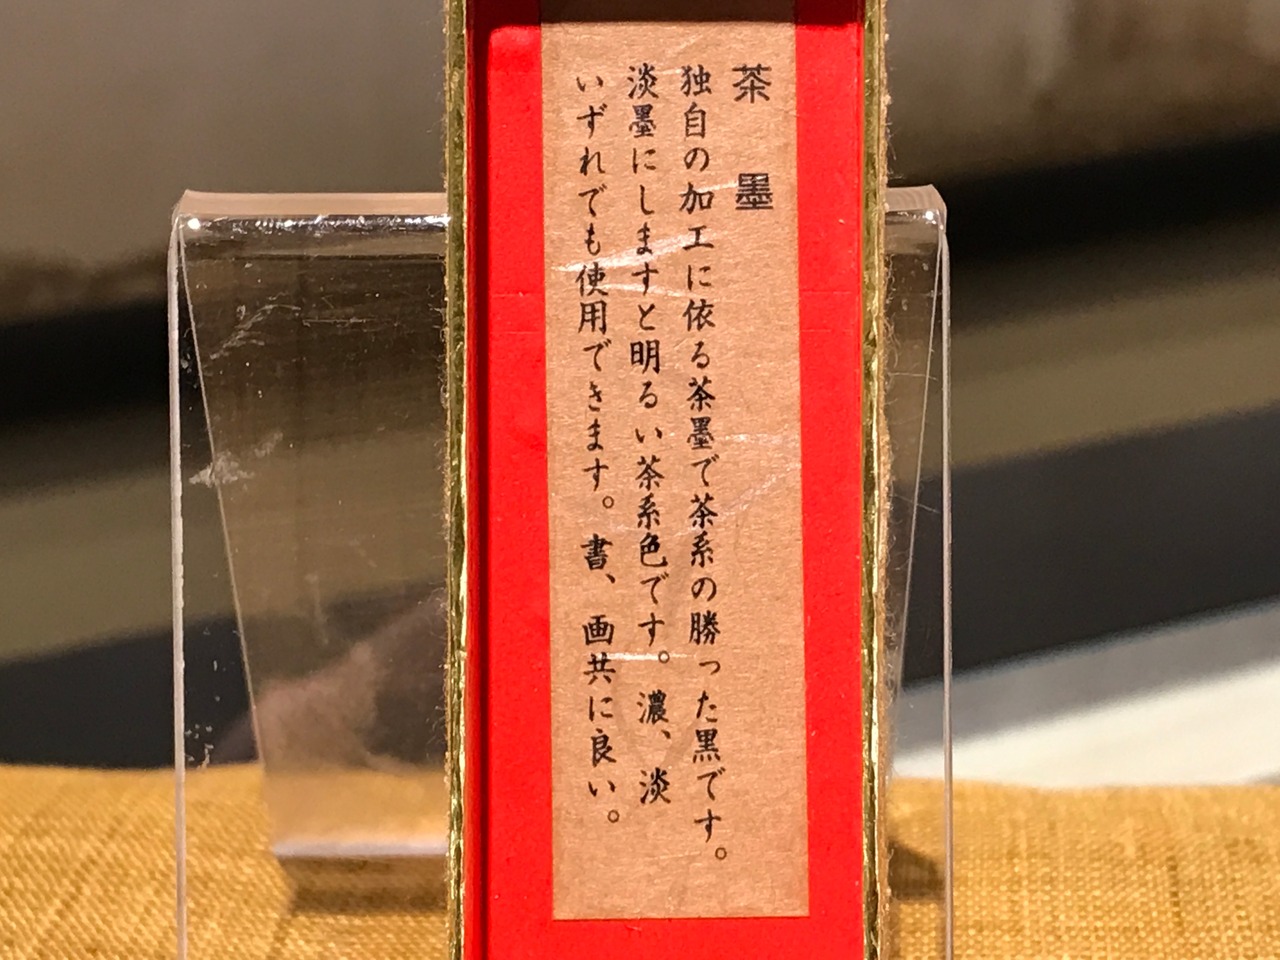 茶墨
独自の加工に依る茶墨で茶系の勝った黒です。
淡墨にしますと明るい茶系色です。濃、淡
いずれでも使用できます。書、画共に良い。